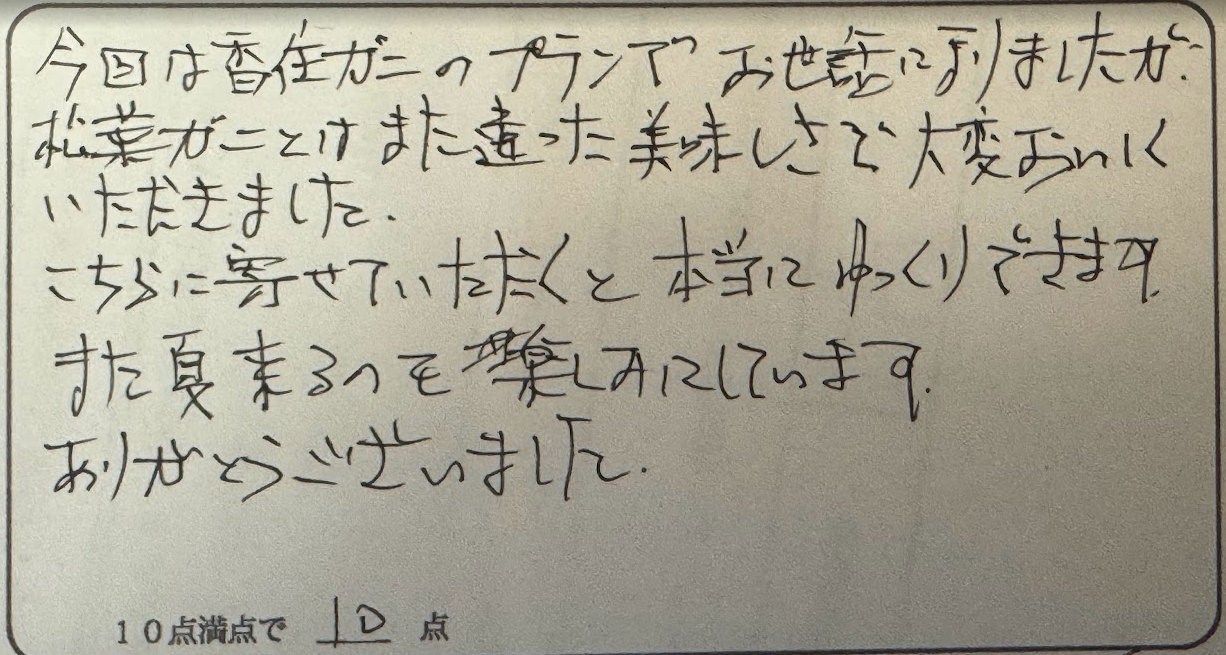 今回は香住ガニのプランでお世話になりましたが、
松葉ガニとはまた違った美味しさで大変おいしく
いただきました。
こちらに寄せていただくと本当にゆっくりできます。
また夏来るのを楽しみにしています。
ありがとうございました。
10点満点で 10 点